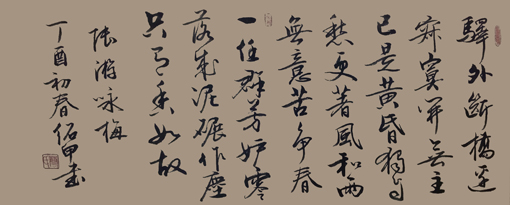 驛外斷橋邊
寂寞開無主
已是黃昏獨自
愁更著風和雨
無意苦爭春
一任群芳妒零
落成泥碾作塵
只有香如故
陸游咏梅
丁酉初春佑甲書